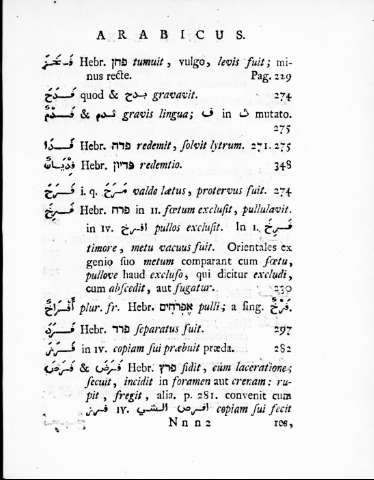 ARABICUS.
فَـخَـرَ Hebr. פחז tumuit, vulgo, levis fuit; mi-
nus recte. Pag. 229
فَـدَحَ quod & بدح gravavit. 274
فَـدُمَ & ثدم gravis lingua; ف in ث mutato.
275
فَـدَا Hebr. פדה redemit, solvit lytrum. 271. 275
Hebr. פדיון redemtio. 348
i. q. مَـرَحَ valde lætus, protervus fuit. 274
فَـرَخَ Hebr. פרח in II. fœtum exclusit, pullulavit.
in IV. افرخ pullos exclusit. In I. فَـرِخَ
timore, metu vacuus fuit. Orientales ex
genio suo metum comparant cum fœtu,
pullove haud excluso, qui dicitur excludi,
cum abscedit, aut fugatur. 230
أَفْـرَاخٌ plur. fr. Hebr. אפרחים pulli; a sing. فَـرْخٌ.
فَـرَدَ Hebr. פרד separatus fuit. 297
فَـرَزَ in IV. copiam sui præbuit præda. 282
فَـرَصَ & فَـرَضَ Hebr. פרץ fidit, cum laceratione;
secuit, incidit in foramen aut crenam: ru-
pit, fregit, alia. p. 281. convenit cum
فرز IV. افرص الشي copiam sui fecit
Nnn2 res,